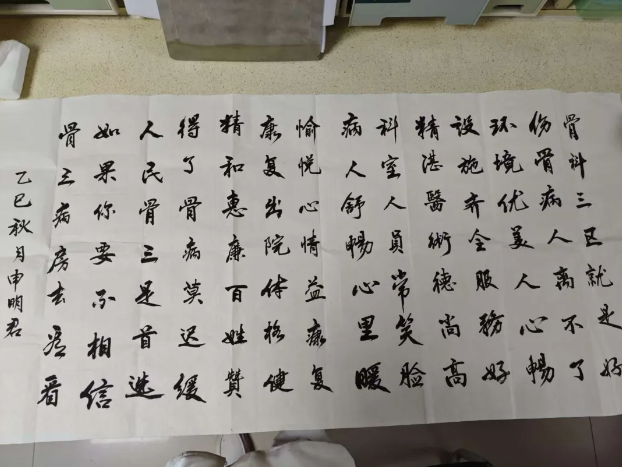 骨科三区就是好
伤骨病人离不了
环境优美人心暢
设施齐全服務好
精湛醫術德尚高
科室人員常笑脸
病人舒暢心里暖
愉悦心情益康复
康复出院体格健
精和惠廉百姓贊
得了骨病莫迟缓
人民骨三是首选
如果你要不相信
骨三病房去看看
乙巳秋月申明君